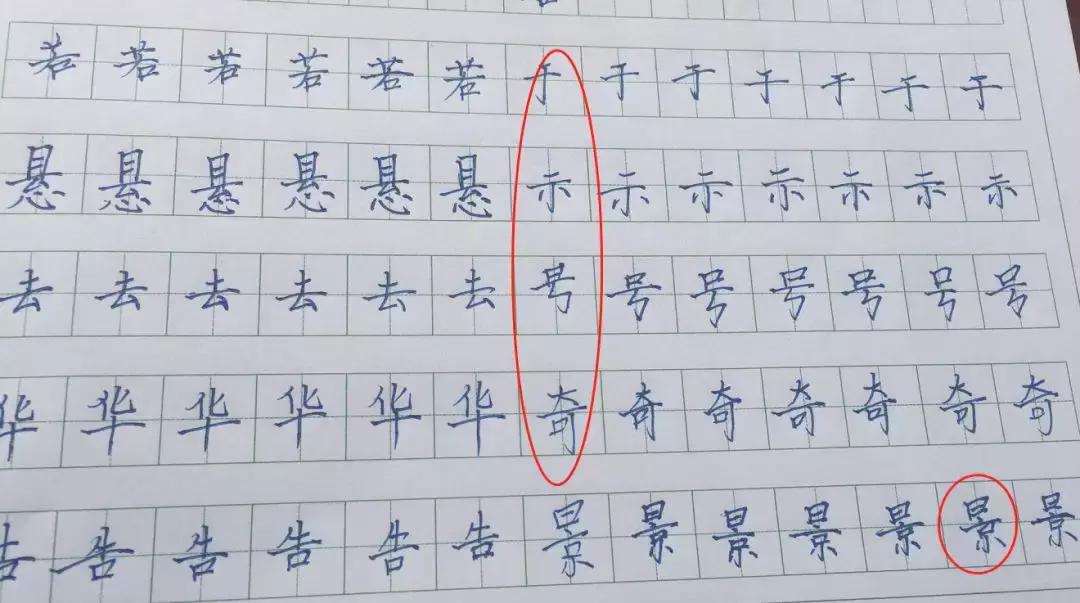 若若若若若若于于于于于于于
悬悬悬悬悬悬示示示示示示示
去去去去去去号号号号号号号
华华华华华华奇奇奇奇奇奇奇
告告告告告告景景景景景景景